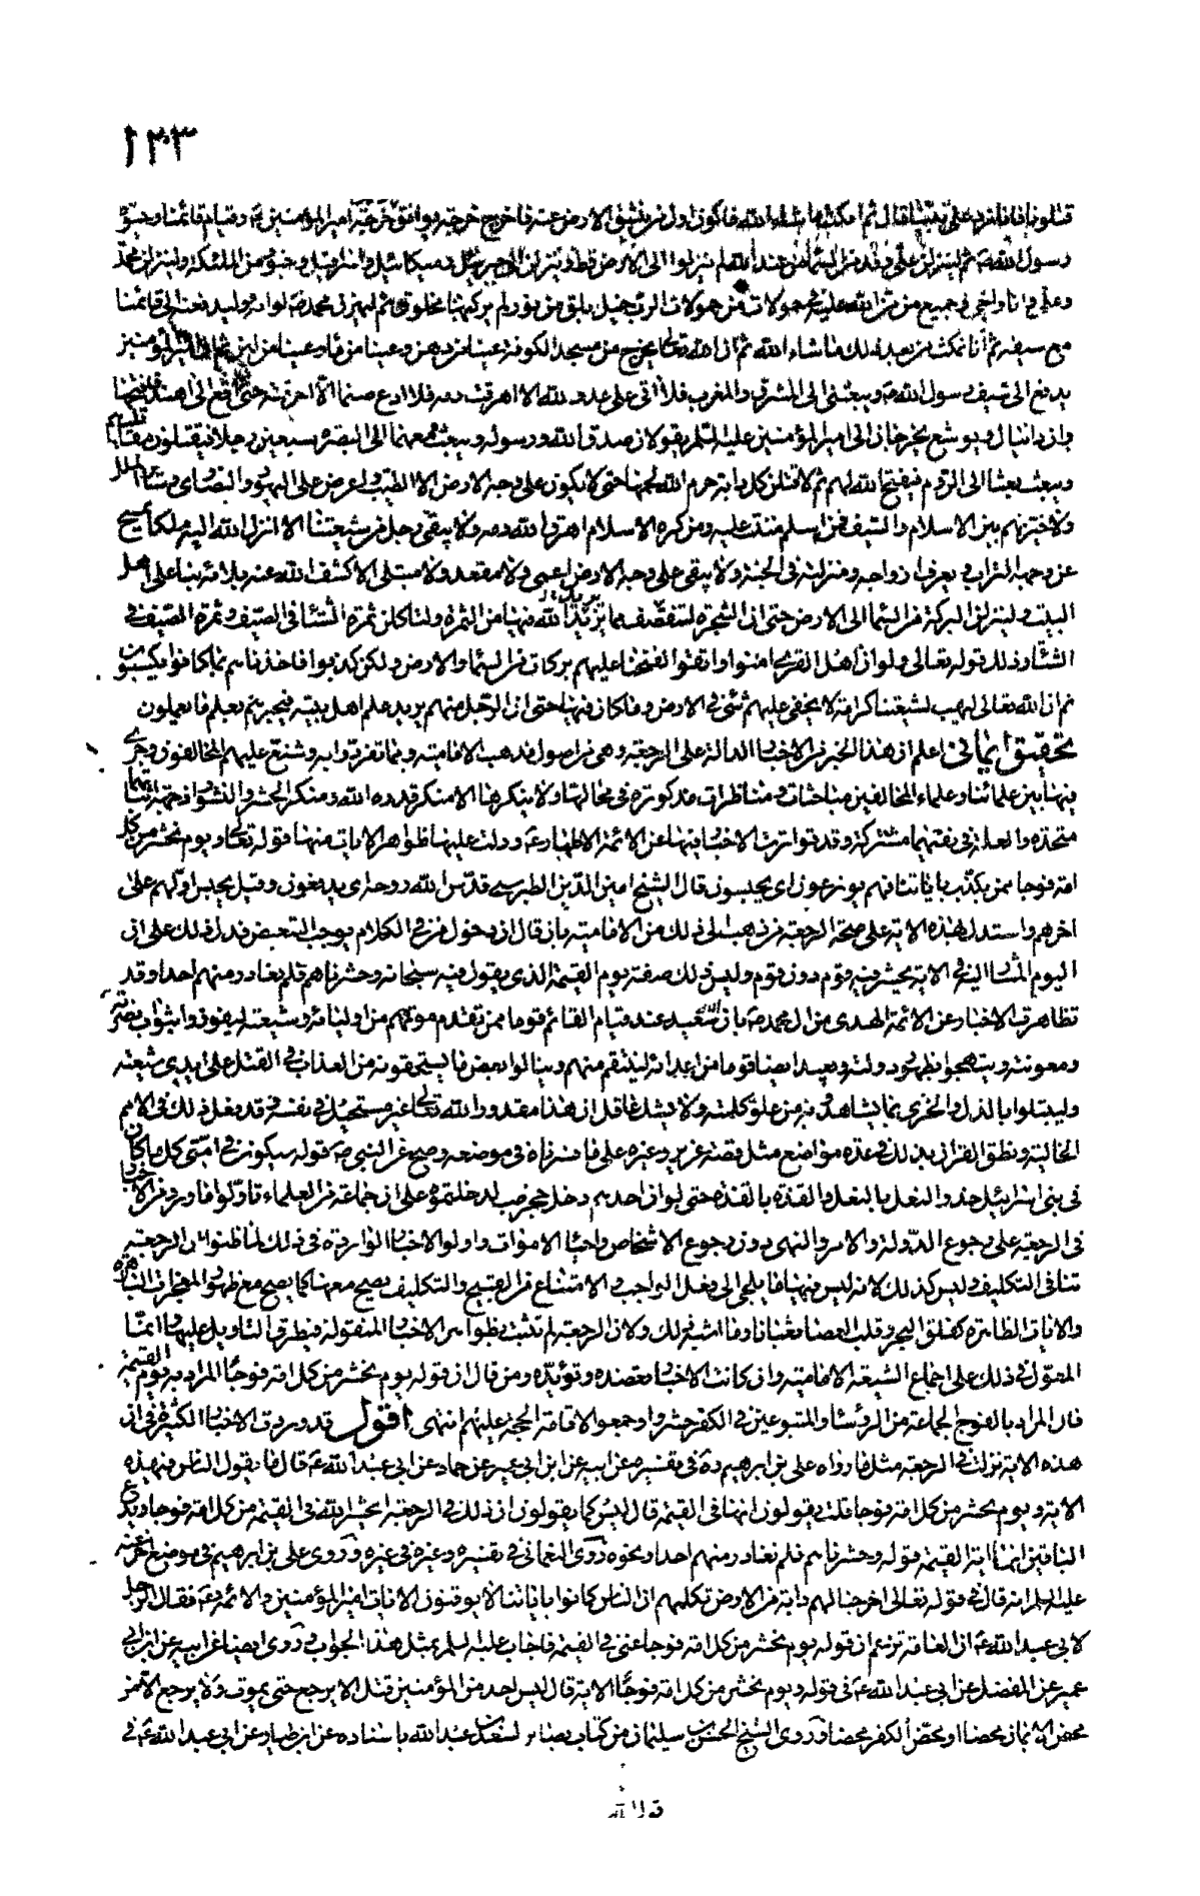 ١٢٣
قتلونا فانا نرد على نبينا قال ثم امكث ما شاء الله فاكون اول من ينشق الارض عنه فاخرج خرجة يوافق خرجة امير المؤمنين ع وقيام قائمنا وحيوة
رسول الله ص ثم لينزلن علي وفد من السماء من عند الله لم ينزلوا الى الارض قط ولينزلن الي جبرئيل وميكائيل واسرافيل وجنود من الملئكة ولينزلن محمد
وعلي وانا واخي وجميع من من الله عليه في حمولات من حمولات الرب خيل بلق من نور لم يركبها مخلوق ثم ليهزن محمد ص لوائه وليدفعنه الى قائمنا
مع سيفه ثم انا نمكث من بعد ذلك ما شاء الله ثم ان الله تعالى يخرج من مسجد الكوفة عينا من دهن وعينا من ماء وعينا من لبن ثم ان امير المؤمنين
يدفع الي سيف رسول الله ص ويبعثني الى المشرق والمغرب فلا اتي على عدو لله الا اهرقت دمه فلا ادع صنما الا احرقته حتى اقع الى الهند فافتحها
وان دانيال ويوشع يخرجان الى امير المؤمنين عليه السلم يقولان صدق الله ورسوله ويبعث معهما الى البصرة سبعين رجلا فيقتلون مقاتليهم
ويبعث بعثا الى الروم فيفتح الله لهم ثم لاقتلن كل دابة حرم الله لحمها حتى لا يكون على وجه الارض الا الطيب واعرض على اليهود والنصارى وسائر الملل
ولاخيرنهم بين الاسلام والسيف فمن اسلم مننت عليه ومن كره الاسلام اهرق الله دمه ولا يبقى رجل من شيعتنا الا انزل الله اليه ملكا يمسح
عن وجهه التراب ويعرفه ازواجه ومنزلته في الجنة ولا يبقى على وجه الارض اعمى ولا مقعد ولا مبتلى الا كشف الله عنه بلائه بنا على اهل
البيت ولينزلن البركة من السماء الى الارض حتى ان الشجرة لتقصف مما يزيد الله فيها من الثمرة ولتاكلن ثمرة الشتاء في الصيف وثمرة الصيف في
الشتاء وذلك قوله تعالى ولو ان اهل القرى امنوا واتقوا لفتحنا عليهم بركات من السماء والارض ولكن كذبوا فاخذناهم بما كانوا يكسبون
ثم ان الله تعالى ليهب لشيعتنا كرامة لا يخفى عليهم شئ في الارض وما كان فيها حتى ان الرجل منهم يريد علم اهل بيته فيخبرهم بعلم ما يعملون
تحقيق ايماني اعلم ان هذا الخبر من الاخبار الدالة على الرجعة وهي من اصول مذهب الامامية ومما تفردوا به وشنع عليهم المخالفون وجرى
فيها بين علمائنا وعلماء المخالفين مباحثات ومناظرات مذكورة في محالها ولا ينكرها الا منكر قدرة الله ومنكر الحشر والنشور اذ جهة اثباتهما
متحدة والعلة في نفيهما مشتركة وقد تواترت الاخبار فيها عن الائمة الاطهار ع ودلت عليها ظواهر الايات منها قوله تعالى ويوم نحشر من كل
امة فوجا ممن يكذب باياتنا فهم يوزعون اي يحبسون قال الشيخ امين الدين الطبرسي قدس الله روحه اي يدفعون وقيل يحبس اولهم على
اخرهم واستدل بهذه الاية على صحة الرجعة من ذهب الى ذلك من الامامية بان قال ان دخول من في الكلام يوجب التبعيض فدل ذلك على ان
اليوم المشار اليه في الاية يحشر فيه قوم دون قوم وليس ذلك صفة يوم القيمة الذي يقول فيه سبحانه وحشرناهم فلم نغادر منهم احدا وقد
تظاهرت الاخبار عن الائمة الهدى من ال محمد ص بان الله سيعيد عند قيام القائم قوما ممن تقدم موتهم من اوليائه وشيعته ليفوزوا بثواب نصرته
ومعونته ويبتهجوا بظهور دولته ويعيد ايضا قوما من اعدائه لينتقم منهم وينالوا بعض ما يستحقونه من العذاب في القتل على ايدي شيعته
وليبتلوا بالذل والخزي بما يشاهدونه من علو كلمته ولا يشك عاقل ان هذا مقدور الله تعالى غير مستحيل في نفسه وقد فعل ذلك في الامم
الخالية ونطق القران بذلك في عدة مواضع مثل قصة عزير وغيره على ما فسرناه في موضعه وصح عن النبي ص قوله سيكون في امتي كل ما كان
في بني اسرائيل حذو النعل بالنعل والقذة بالقذة حتى لو ان احدهم دخل جحر ضب لدخلتموه على ان جماعة من العلماء تاولوا ما ورد من الاخبار
في الرجعة على رجوع الدولة والامر والنهي دون رجوع الاشخاص واحياء الاموات واولوا الاخبار الواردة في ذلك لما ظنوا ان الرجعة
تنافي التكليف وليس كذلك لانه ليس فيها ما يلجئ الى فعل الواجب والامتناع من القبيح والتكليف يصح معها كما يصح مع ظهور المعجزات الباهرة
والايات الظاهرة كفلق البحر وقلب العصا ثعبانا وما اشبه ذلك ولان الرجعة لم تثبت بظواهر الاخبار المنقولة فيطرق التاويل عليها وانما
المعول في ذلك على اجماع الشيعة الامامية وان كانت الاخبار تعضده وتؤيده ومن قال ان قوله يوم نحشر من كل امة فوجا المراد به يوم القيمة
قال المراد بالفوج الجماعة من الرؤساء والمتبوعين في الكفر حشروا وجمعوا لاقامة الحجة عليهم انتهى اقول قد وردت الاخبار الكثيرة في ان
هذه الاية نزلت في الرجعة مثل ما رواه علي بن ابراهيم ره في تفسيره عن ابيه عن ابن ابي عمير عن حماد عن ابي عبد الله ع قال ما يقول الناس في هذه
الاية ويوم نحشر من كل امة فوجا قلت يقولون انها في القيمة قال ليس كما يقولون ان ذلك في الرجعة ايحشر الله في القيمة من كل امة فوجا ويدع
الباقين انما اية القيمة قوله وحشرناهم فلم نغادر منهم احدا ونحوه روى النعماني في تفسيره وغيره في غيره وروى علي بن ابراهيم في موضع اخر عنه
عليه السلم انه قال في قوله تعالى اخرجنا لهم دابة من الارض تكلمهم ان الناس كانوا باياتنا لا يوقنون الايات امير المؤمنين والائمة ع فقال الرجل
لابي عبد الله ع ان العامة تزعم ان قوله يوم نحشر من كل امة فوجا عنى في القيمة فاجاب عليه السلم بمثل هذا الجواب وروى ايضا عن ابيه عن ابن ابي
عمير عن المفضل عن ابي عبد الله ع في قوله ويوم نحشر من كل امة فوجا الاية قال ليس احد من المؤمنين قتل الا يرجع حتى يموت ولا يرجع الا من
محض الايمان محضا او محض الكفر محضا وروى الشيخ الحسن بن سليمان من كتاب بصائر لسعد بن عبد الله باسناده عن ابن طيار عن ابي عبد الله ع في
قول الله